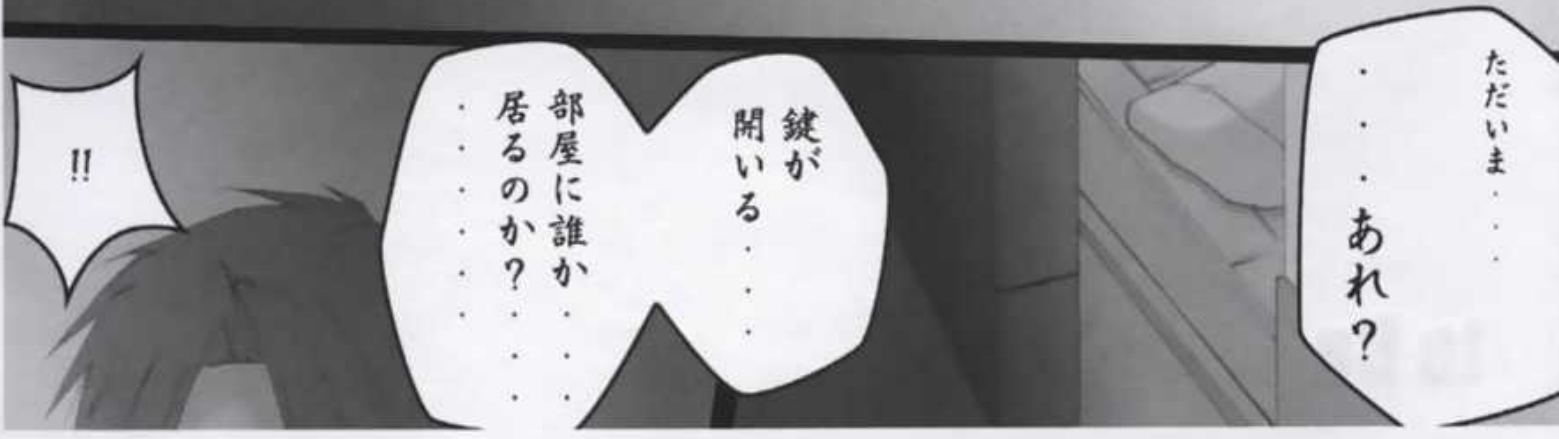 ただいま・・・
・・・あれ?
鍵が
開いる・・・
部屋に誰か・・・
居るのか?・・・
・・・・・・・
!!